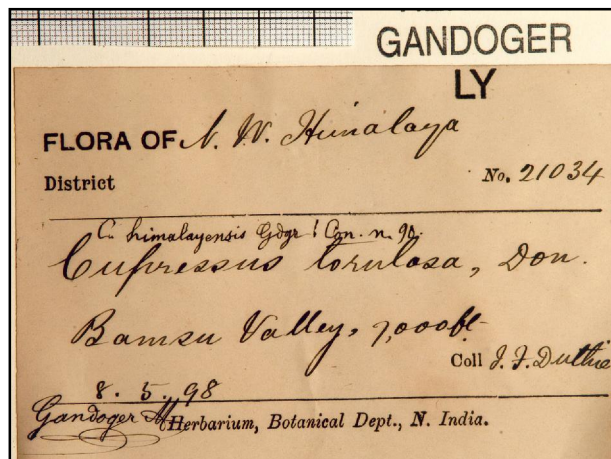 GANDOGER
LY
FLORA OF N. W. Himalaya
District No. 21034
C. himalayensis Gdgr ! Con. n. 90.
Cupressus torulosa, Don.
Bamsu Valley, 7,000 ft
Coll J. F. Duthie
8. 5. 98
Gandoger M Herbarium, Botanical Dept., N. India.